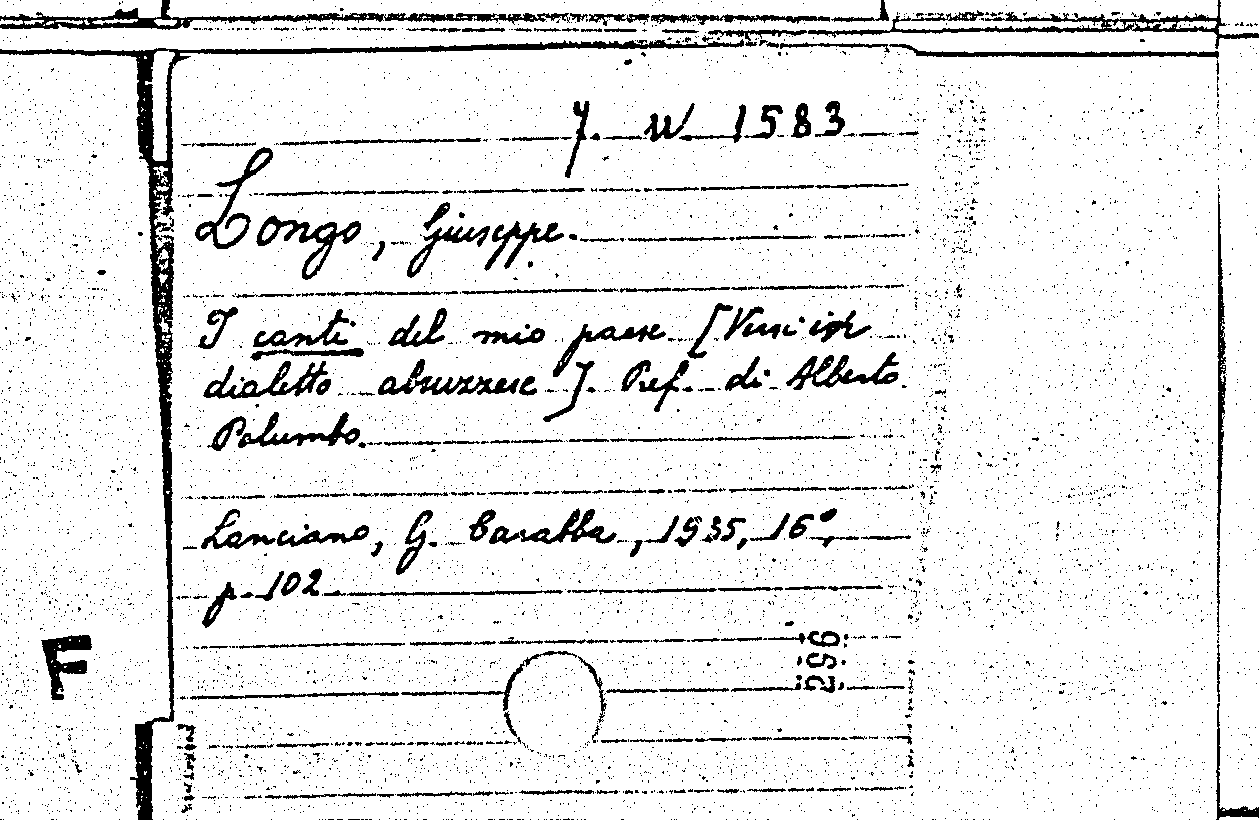 7. W 1583
Longo, Giuseppe.
I canti del mio paese [Versi in
dialetto abruzzese]. Pref. di Alberto
Palumbo.
Lanciano, G. Carabba, 1935, 16°,
p. 102
296
F